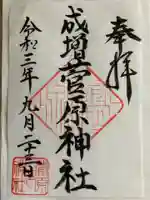 奉拝
成増菅原神社
令和三年九月二十三日